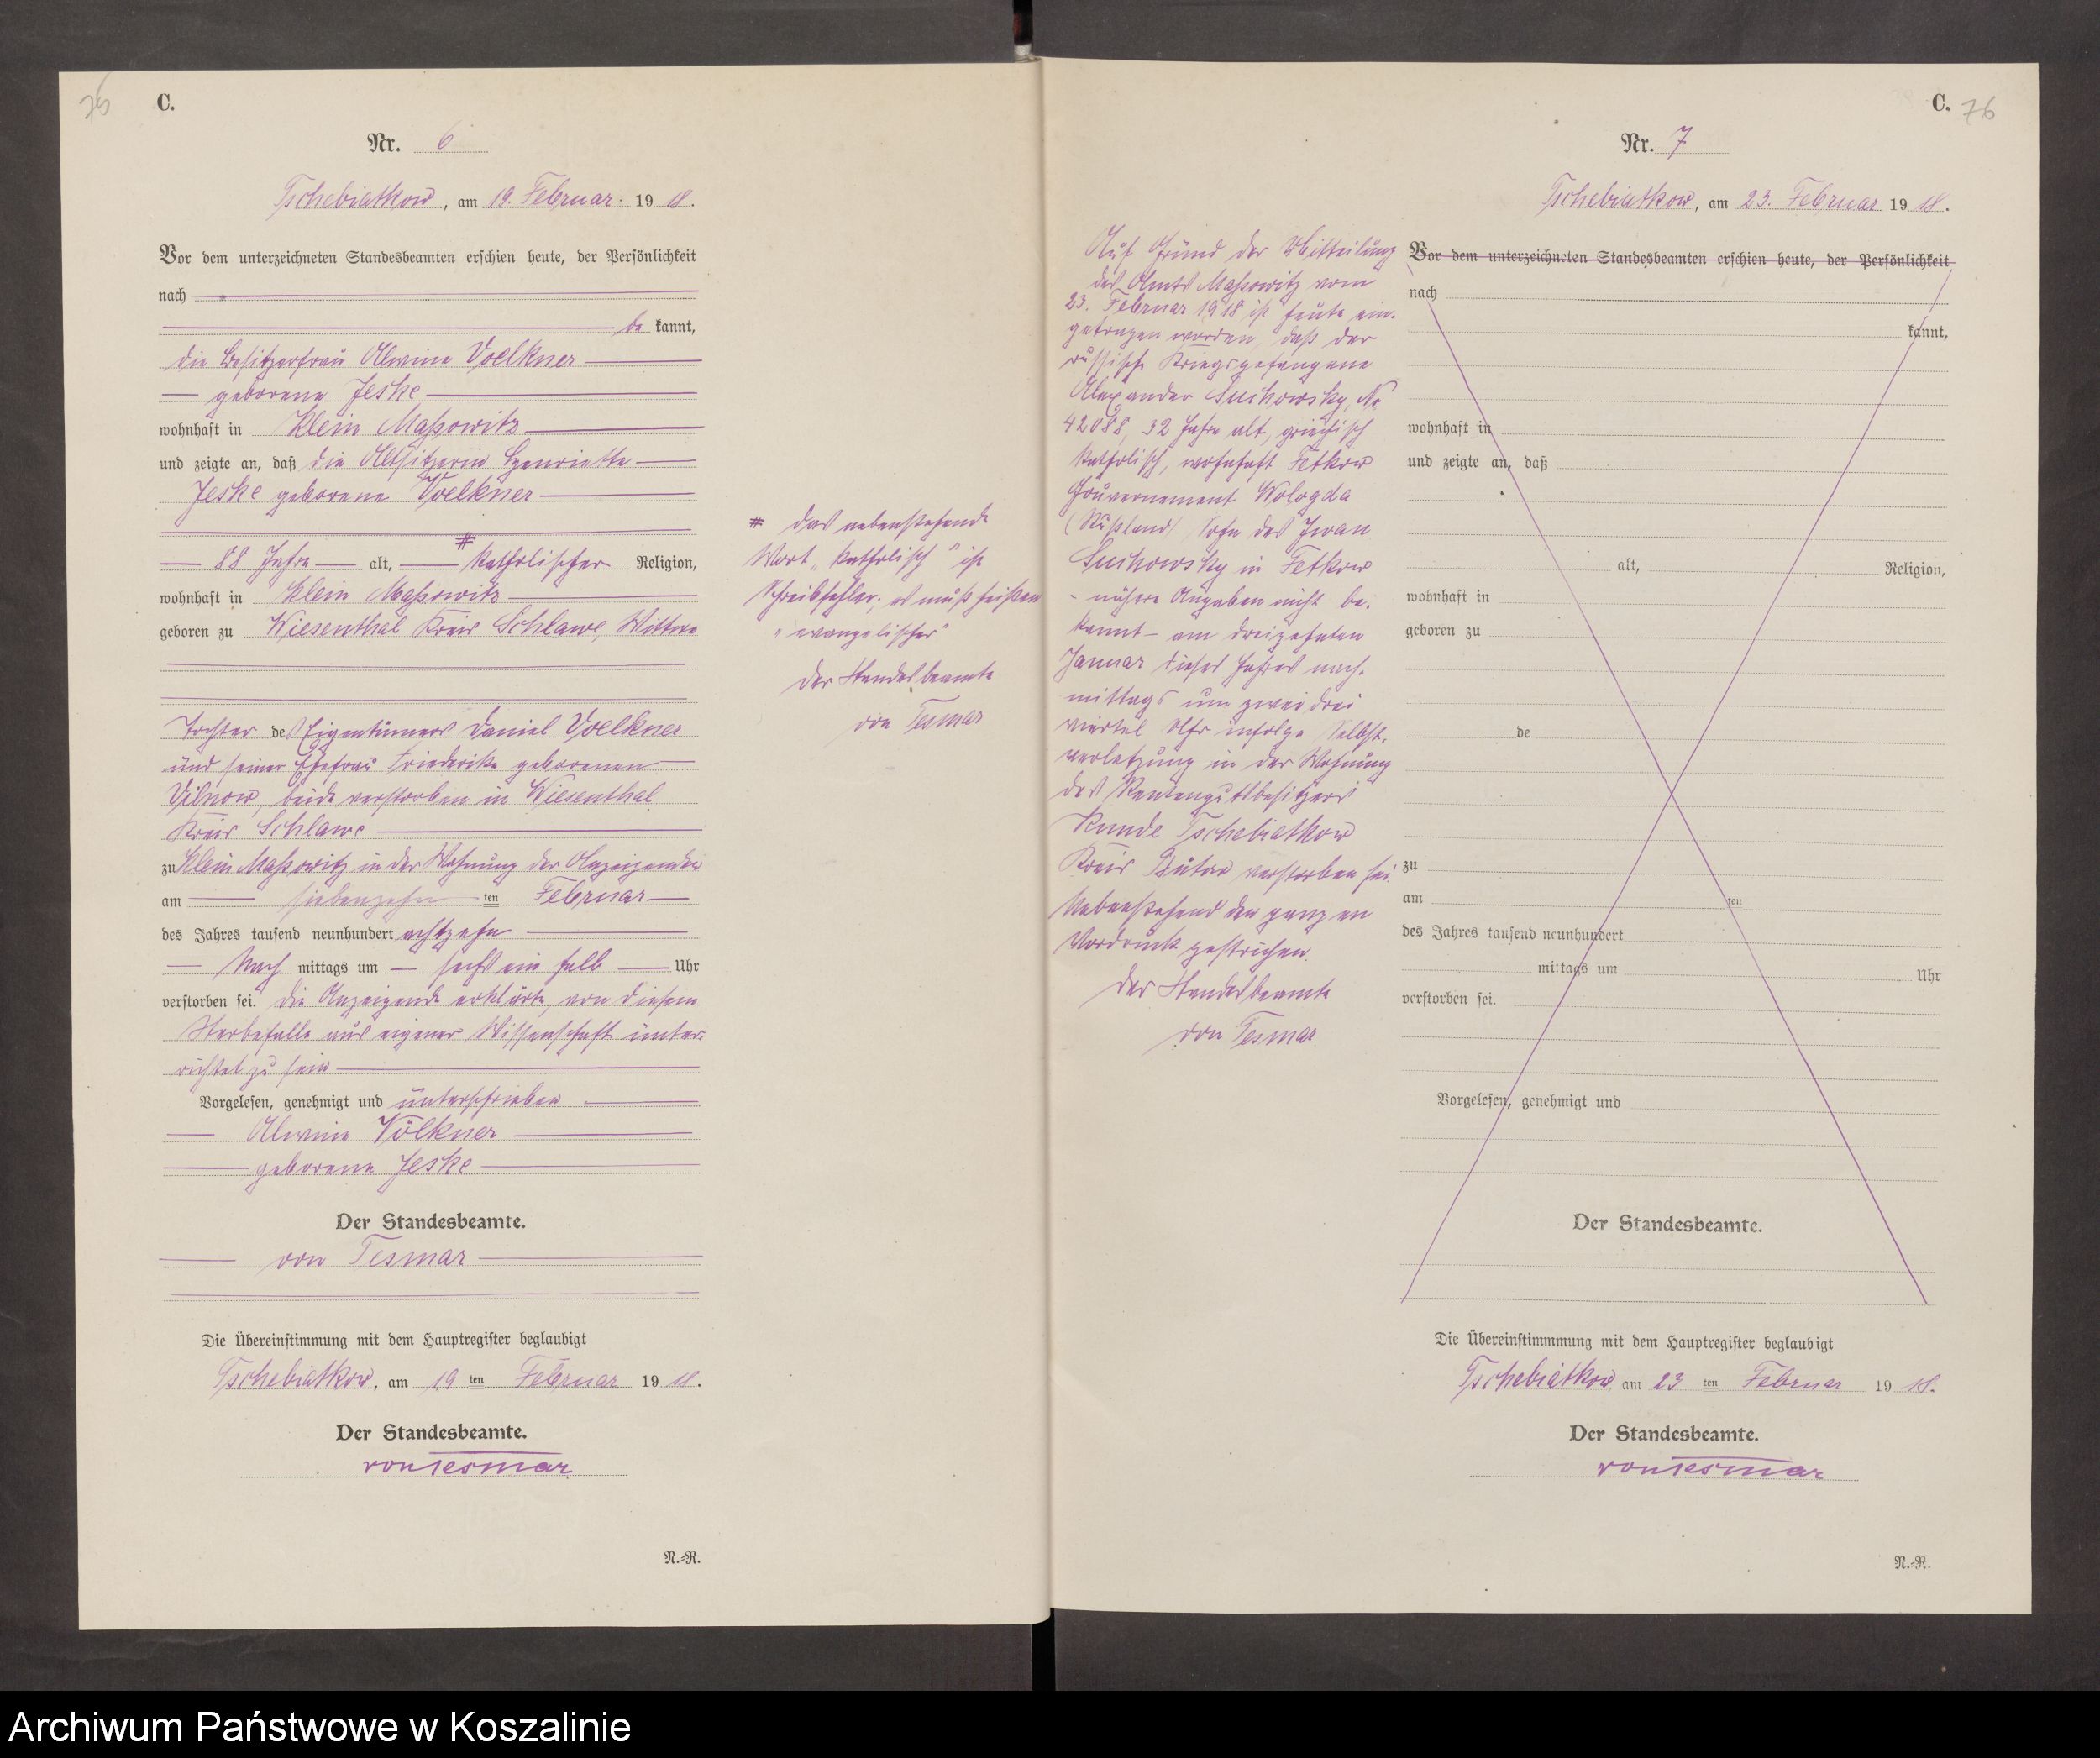 75
C.
Nr. 6
Tschebiatkow, am 19. Februar. 19 18.
Vor dem unterzeichneten Standesbeamten erschien heute, der Persönlichkeit
nach
be kannt,
die Besitzerfrau Alwine Voelkner
geborene Jeske
wohnhaft in Klein Massowitz
und zeigte an, daß die Altsitzerin Henriette
Jeske geborene Voelkner
88 Jahre alt, # katholischer Religion,
wohnhaft in Klein Massowitz
geboren zu Wiesenthal Kreis Schlawe, Witwe
Tochter des Eigentümers Daniel Voelkner
und seiner Ehefrau Friederike geborenen
Vilnow, beide verstorben in Wiesenthal
Kreis Schlawe
zu Klein Massowitz in der Wohnung der Anzeigenden
am siebenzehn ten Februar
des Jahres tausend neunhundert achtzehn
Nach mittags um sechs ein halb Uhr
verstorben sei. Die Anzeigende erklärte, von diesem
Sterbefalle aus eigener Wissenschaft unter-
richtet zu sein
Vorgelesen, genehmigt und unterschrieben
Alwine Völkner
geborene Jeske
Der Standesbeamte.
von Tesmar
Die Übereinstimmung mit dem Hauptregister beglaubigt
Tschebiatkow, am 19 ten Februar 19 18.
Der Standesbeamte.
von Tesmar
N.=R.
# Das nebenstehende
Wort „katholisch" ist
Schreibfehler; es muß heißen
„evangelischer"
Der Standesbeamte
von Tesmar
C. 76
Nr. 7
Tschebiatkow, am 23. Februar 19 18.
Auf Grund der Mitteilung
des Amts Massowitz vom
23. Februar 1918 ist heute ein-
getragen worden, daß der
russische Kriegsgefangene
Alexander Suchowsky, No
42088, 32 Jahre alt, griechisch
katholisch, wohnhaft Fetkow
Gouvernement Wologda
(Rußland) Sohn des Iwan
Suchowsky in Fetkow
- nähere Angaben nicht be-
kannt - am dreizehnten
Januar dieses Jahres nach-
mittags um zwei drei
viertel Uhr infolge Selbst-
verletzung in der Wohnung
des Rentengutsbesitzers
Kunde Tschebiatkow
Kreis Bütow verstorben sei.
Nebenstehend den ganzen
Vordruck gestrichen.
Der Standesbeamte
von Tesmar
Vor dem unterzeichneten Standesbeamten erschien heute, der Persönlichkeit
nach
kannt,
wohnhaft in
und zeigte an, daß
alt, Religion,
wohnhaft in
geboren zu
de
zu
am ten
des Jahres tausend neunhundert
mittags um Uhr
verstorben sei.
Vorgelesen, genehmigt und
Der Standesbeamte.
Die Übereinstimmmung mit dem Hauptregister beglaubigt
Tschebiatkow am 23 ten Februar 19 18.
Der Standesbeamte.
von Tesmar
N.=R.
Archiwum Państwowe w Koszalinie